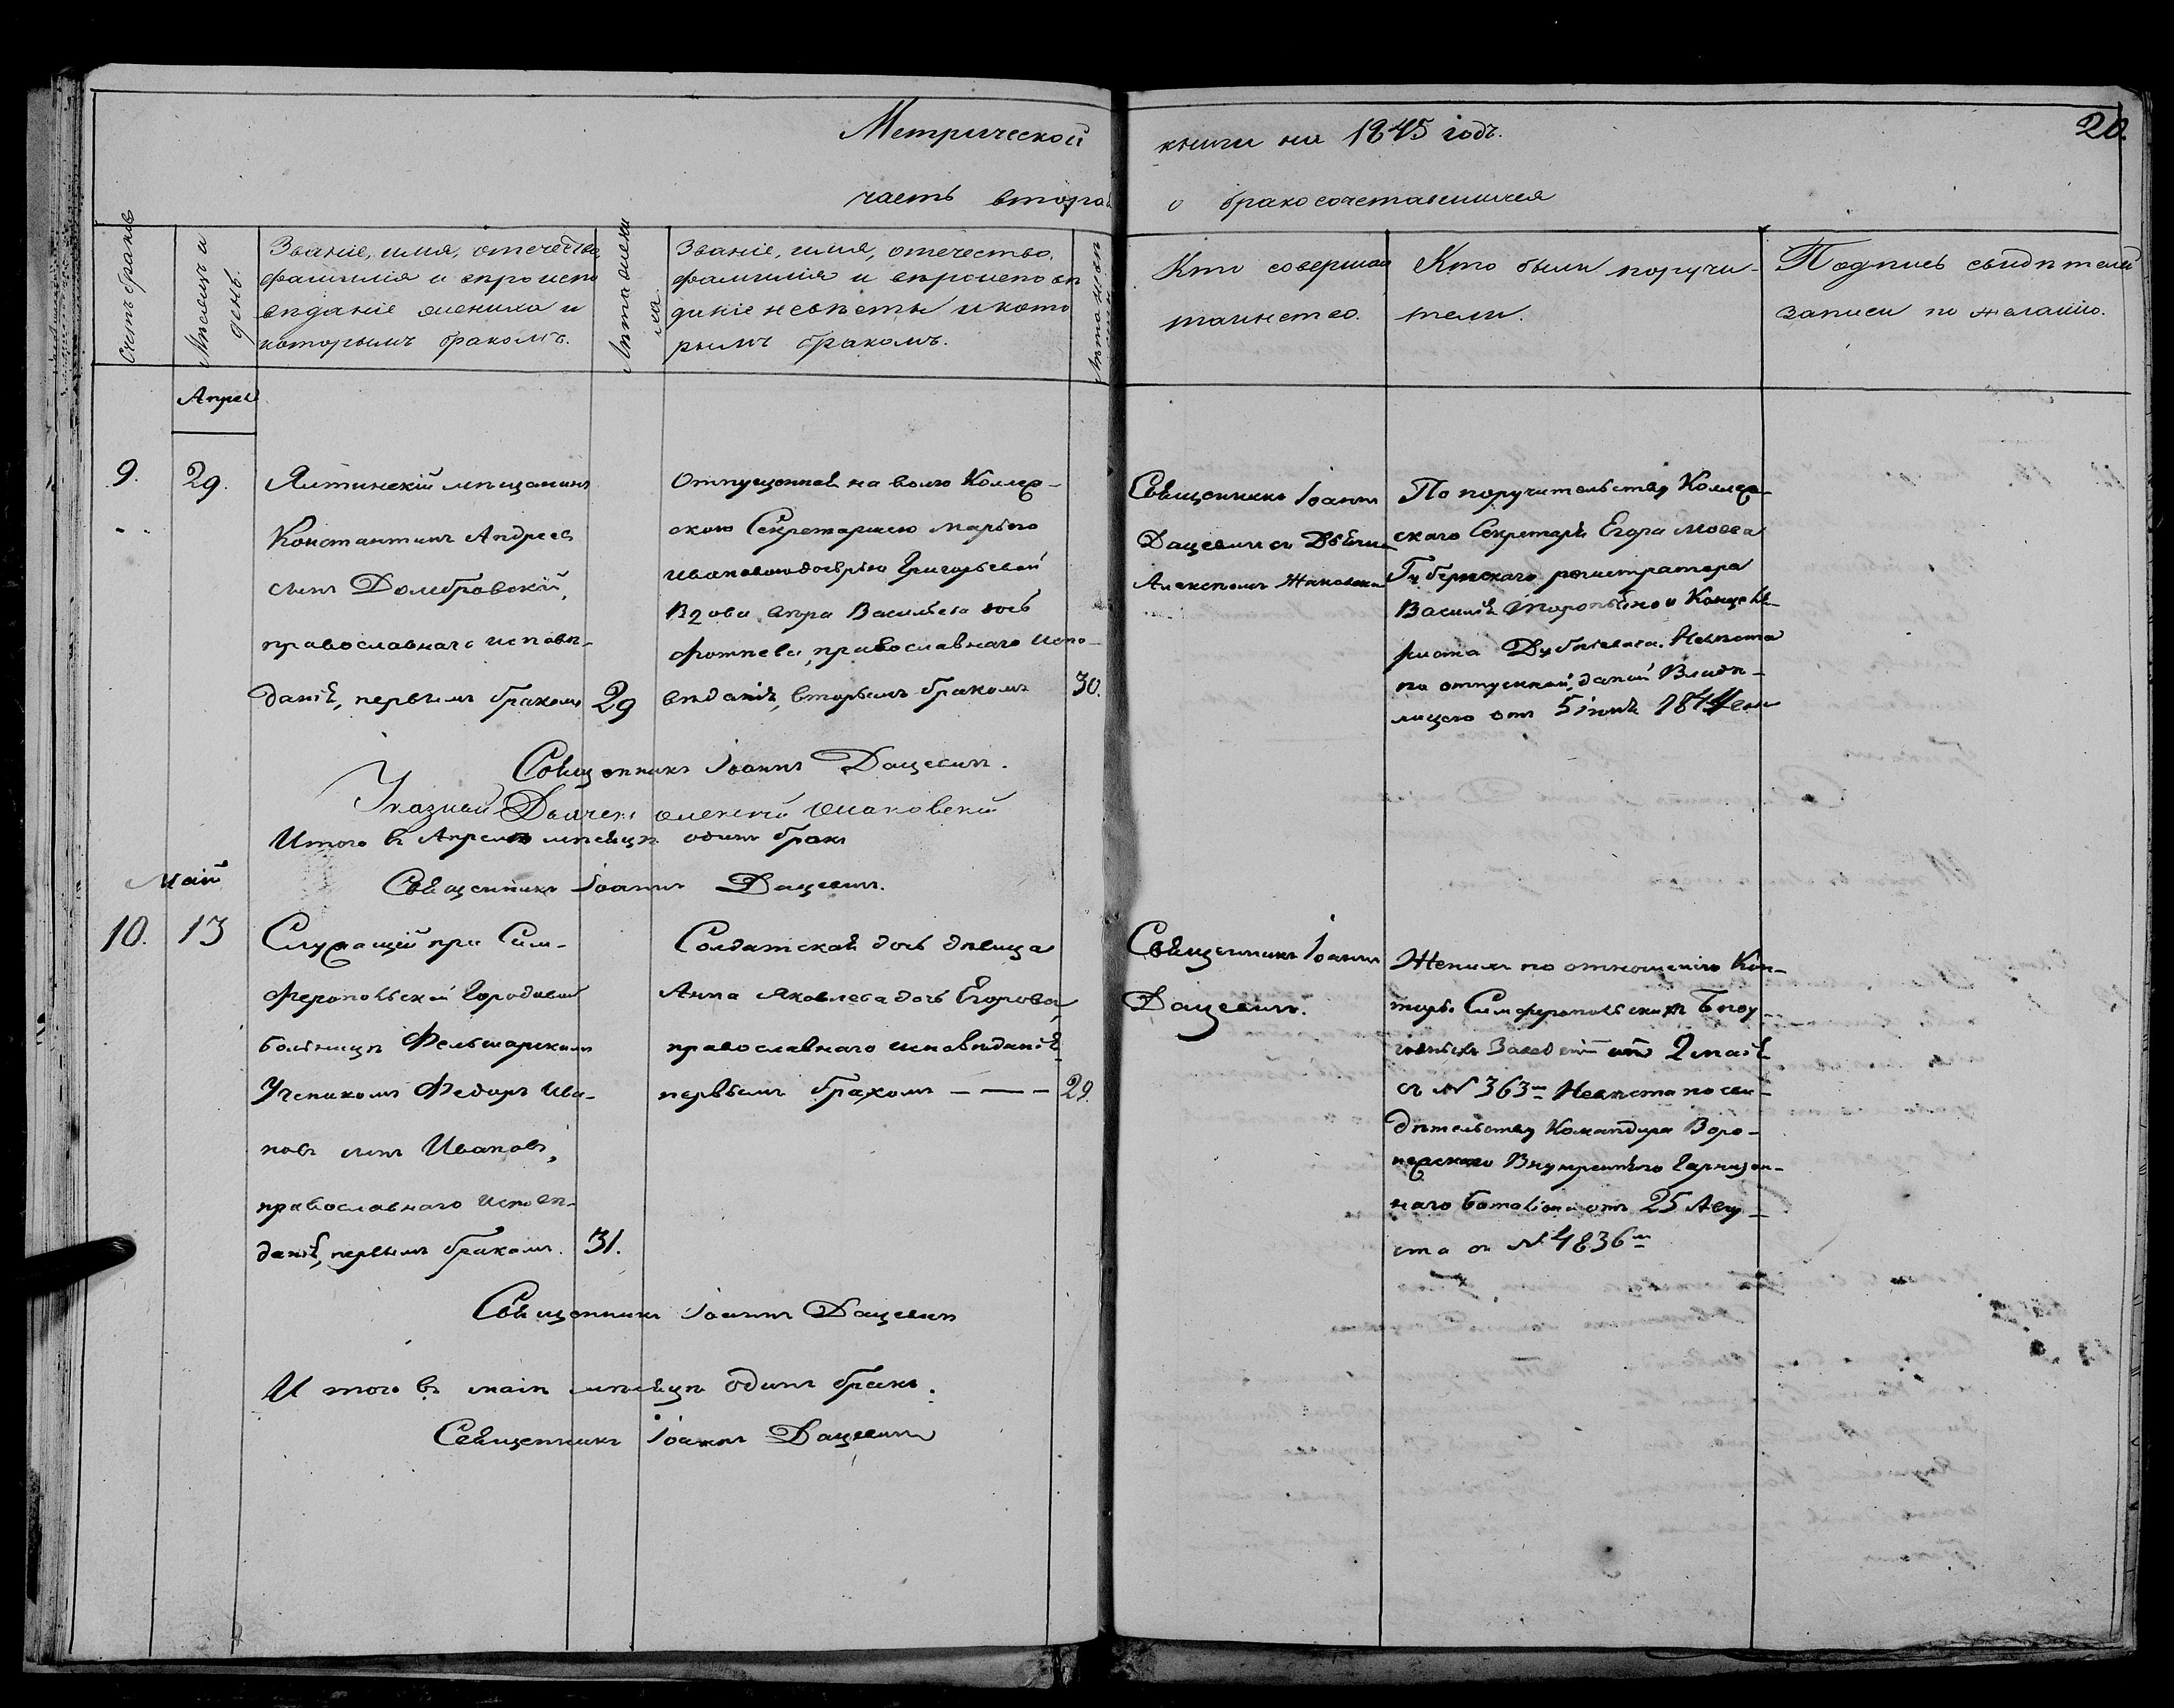 Метрической книги на 1845 годъ.
20.
часть вторая о бракосочетавшихся
Счетъ браковъ
Мѣсяцъ и день.
Званіе, имя, отечество,
фамилія и вѣроиспо
вѣданіе жениха и
которымъ бракомъ.
Лѣта жениха
Званіе, имя, отечество,
фамилія и вѣроисповѣ
даніе невѣсты и кото
рымъ бракомъ.
Лѣта невѣсты
Кто совершал
таинство.
Кто были поручи-
тели.
Подпись свидѣтелей
записи по желанію.
Апрел
9.
29.
Ялтинскій мѣщанинъ
Константинъ Андреев
сынъ Домбровскій,
православнаго исповѣ-
данія, первымъ бракомъ
29
Отпущенная на волю Коллеж-
скою Секретаршею Марьею
Ивановою дочерью Григорьевой
вдова Васильева дочь
православнаго испо-
вѣданія, вторымъ бракомъ
30.
Священникъ Іоаннъ
Дацевичъ съ
Алексѣемъ
По поручительству Коллеж-
скаго Секретаря Егора
Губернскаго регистратора
Василія и Канцеля-
риста Невѣста
по отпускной, данной Владѣ-
лицею отъ 5 іюня 1844
Священникъ Іоаннъ Дацевичъ.
Указный
Итого въ Апрелѣ мѣсяцѣ одинъ бракъ
Май
Священникъ Іоаннъ Дацевичъ.
10.
13
Служащій при Сим-
феропольской Городовой
больницѣ Фельшарскимъ
Ученикомъ Федоръ Ива-
новъ сынъ Ивановъ,
православнаго исповѣ-
данія, первымъ бракомъ.
31.
Солдатская дочь дѣвица
Анна Яковлева дочь Егорова,
православнаго исповѣданія
первымъ бракомъ — — —
29.
Священникъ Іоаннъ
Дацевичъ.
Женихъ по отношенію Кон-
торы Симферопольскихъ Богоу-
годныхъ Заведеній отъ 2 мая
съ № 363м Невѣста по сви-
дѣтельству Командира Воро-
нежскаго Внутренняго Гарнизон-
наго Баталіона отъ 25 Авгу-
ста съ № 4836м
Священникъ Іоаннъ Дацевичъ
И того въ маѣ мѣсяцѣ одинъ бракъ.
Священникъ Іоаннъ Дацевичъ